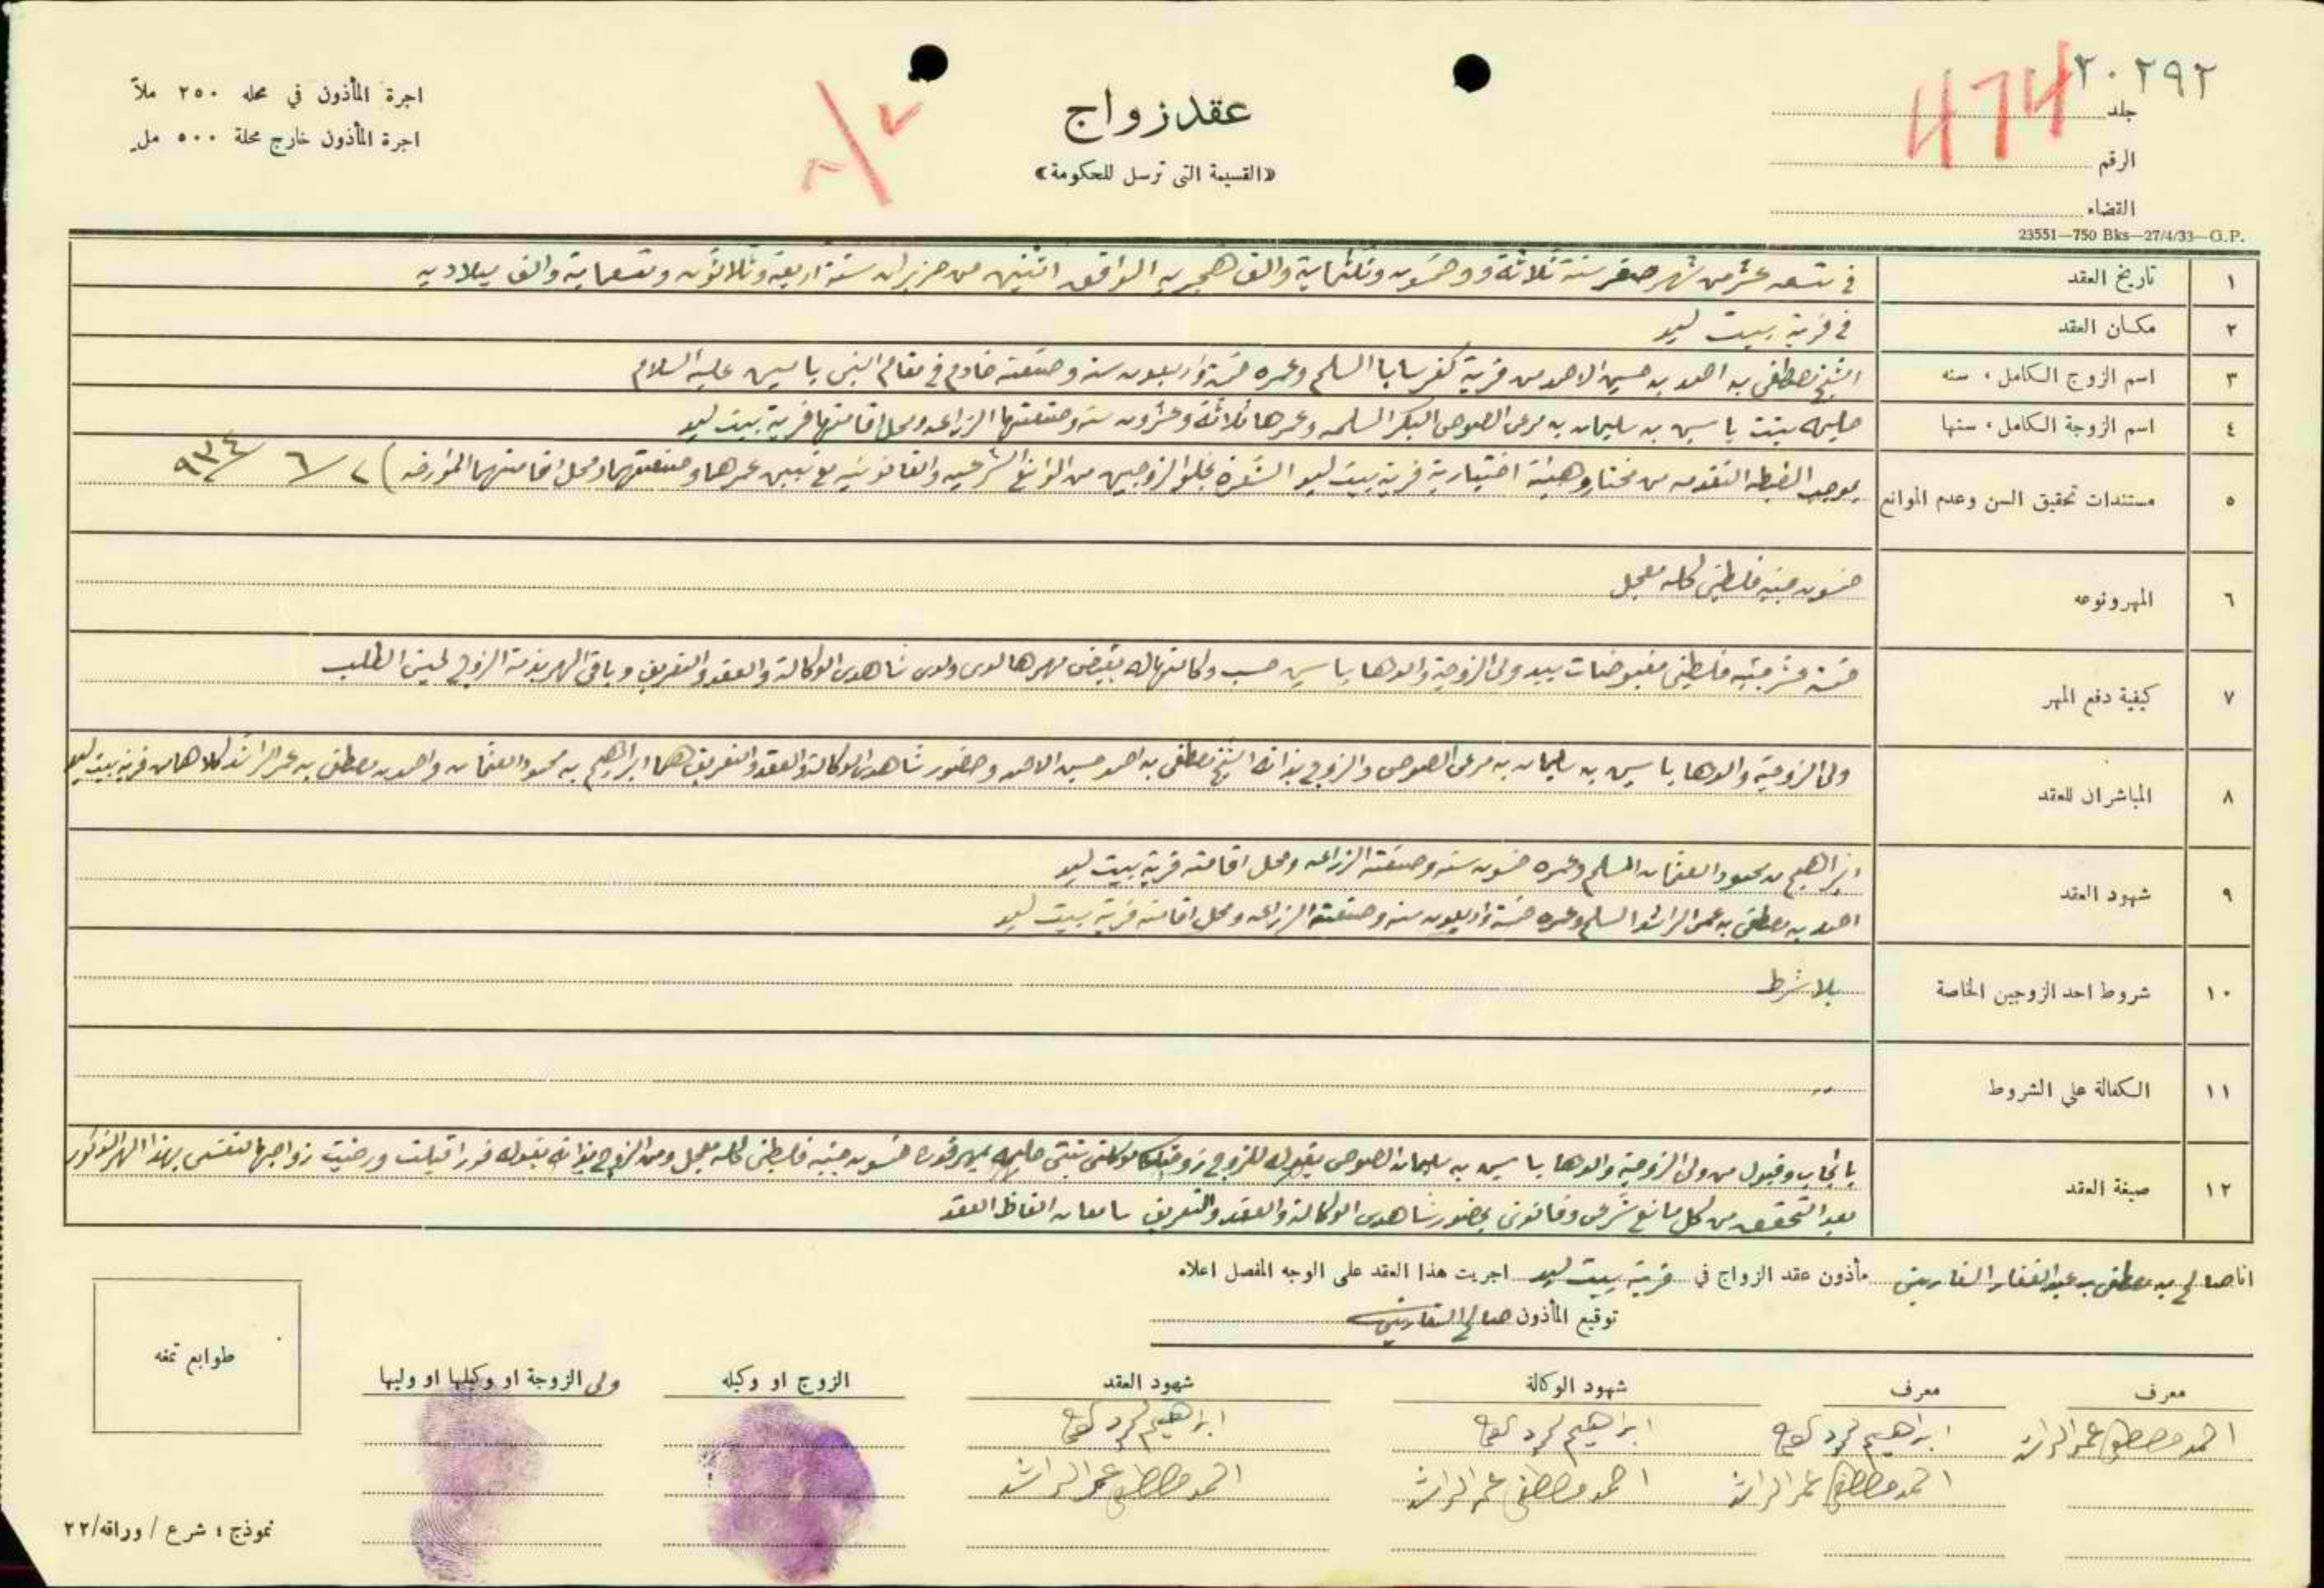 ٢٠٢٩٢
474
جلد
الرقم
القضاء
23551—750 Bks—27/4/33—G.P.
عقد زواج
«القسيمة التي ترسل للحكومة»
اجرة المأذون في محله ٢٥٠ ملاً
اجرة المأذون خارج محلة ٥٠٠ مل
١ تاريخ العقد في تسعة عشر من شهر صفر سنة ثلاثة وخمسون وثلثماية والف هجريه الموافق اثنين من حزيران سنة اربعة وثلاثون وتسعماية والف ميلاديه
٢ مكان العقد في قرية بيت ليد
٣ اسم الزوج الكامل، سنه الشيخ مصطفى بن احمد بن حسين الاحمد من قرية كفر سابا المسلم وعمره خمسة واربعون سنه وصنعته خادم في مقام النبي يامين عليه السلام
٤ اسم الزوجة الكامل، سنها حليمه بنت ياسين بن سليمان بن مرعى الصوص البكر المسلمه وعمرها ثلاثة وعشرون سنه وصنعتها الزراعه ومحل اقامتها قرية بيت ليد
٥ مستندات تحقيق السن وعدم الموانع بموجب الضبطه المتقدمه من مختار وهيئة اختيارية قرية بيت ليد المشعرة بخلو الزوجين من الموانع الشرعيه والقانونيه مع تبيين عمرهما وصنعتهما ومحل اقامتهما المؤرخه) ٢/ ٦/ ٩٣٤
٦ المهر ونوعه خمسون جنيه فلسطيني كله معجل
٧ كيفية دفع المهر خمسة عشر جنيه فلسطيني مقبوضات بيد ولي الزوجة والدها ياسين حسب وكالتها له بقبض مهرها لدى ولدى شاهدى الوكالة والعقد والتعريف وباقي المهر بذمة الزوج لحين الطلب
٨ المباشران للعقد ولي الزوجة والدها ياسين بن سليمان بن مرعى الصوص والزوج بذاته الشيخ مصطفى بن احمد حسين الاحمد وحضور شاهدى الوكالة والعقد والتعريف هما ابراهيم بن محمود العثمان واحمد بن مصطفى بن عمر الراشد كلاهما من قرية بيت ليد
٩ شهود العقد ابراهيم بن محمود العثمان المسلم وعمره خمسون سنه وصنعته الزراعه ومحل اقامته قرية بيت ليد
احمد بن مصطفى بن عمر الراشد المسلم وعمره خمسة واربعون سنه وصنعته الزراعه ومحل اقامته قرية بيت ليد
١٠ شروط احد الزوجين الخاصة بلا شرط
١١ الكفالة على الشروط
١٢ صيغة العقد بايجاب وقبول من ولي الزوجة والدها ياسين بن سليمان الصوص بقوله للزوج زوجتك موكلتي بنتي حليمه بمهر قدره خمسون جنيه فلسطيني كله معجل ومن الزوج بذاته بقوله فورا قبلت ورضيت زواجها لنفسي بهذا المهر المذكور
بعد التحقق من كل مانع شرعي وقانوني بحضور شاهدى الوكالة والعقد والتعريف سامعان الفاظ العقد
انا صالح بن مصطفى بن عبد الغفار السفاريني مأذون عقد الزواج في قرية بيت ليد اجريت هذا العقد على الوجه المفصل اعلاه
توقيع المأذون صالح السفاريني
معرف
احمد مصطفى عمر الراشد
معرف
ابراهيم محمود
احمد مصطفى عمر الراشد
شهود الوكالة
ابراهيم محمود
احمد مصطفى عمر الراشد
شهود العقد
ابراهيم محمود
احمد مصطفى عمر الراشد
الزوج او وكيله
ولي الزوجة او وكيلها او وليها
طوابع تمغه
نموذج؛ شرع / وراقه/٢٢